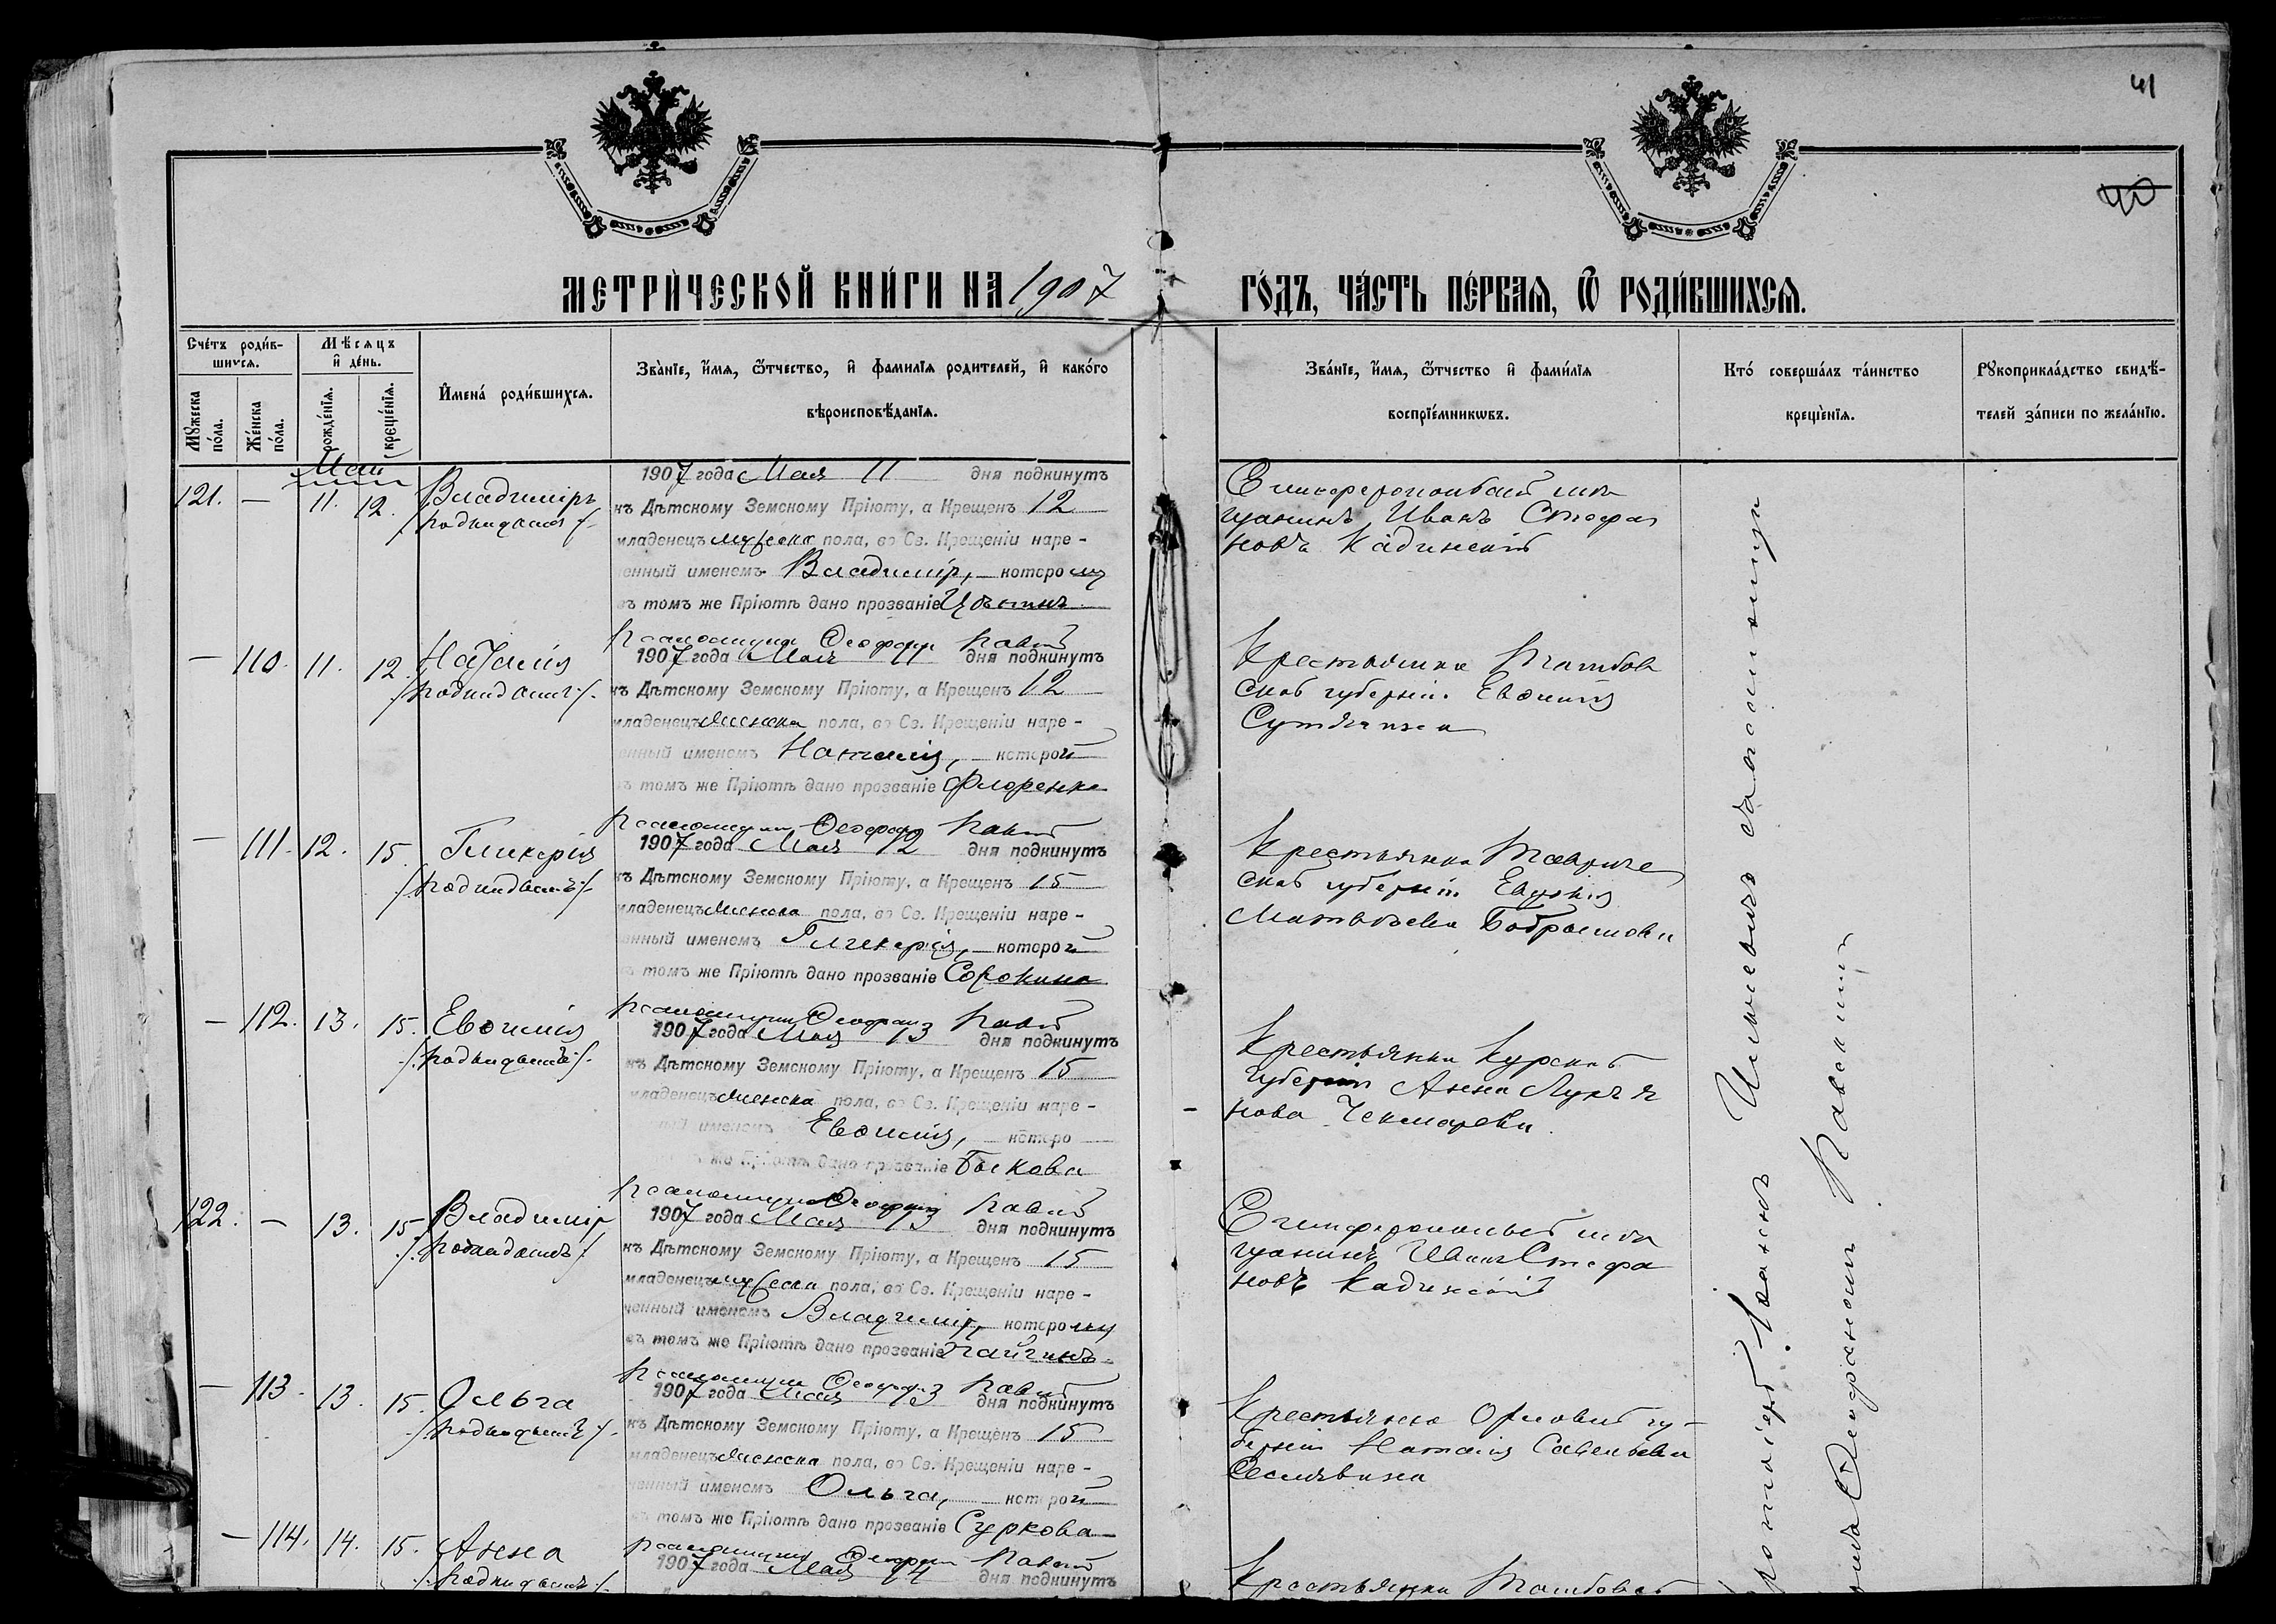 41
40
МЕТРИ́ЧЕСКОЙ КНИ́ГИ НА 1907 ГО́ДЪ, ЧА́СТЬ ПЕ́РВАѦ, Ѿ РОДИ́ВШИХСѦ.
Сче́тъ роди́в-
шихсѧ.
Му́жеска
по́ла.
Же́нска
по́ла.
Мѣ́сяцъ
и҆ де́нь.
рожде́нїѧ.
креще́нїѧ.
И҆мена́ роди́вшихсѧ.
Зва́нїе, и҆́мѧ, ѻ҆́тчество, и҆ фами́лїѧ роди́телей, и҆ како́го
вѣроисповѣ́данїѧ.
Зва́нїе, и҆́мѧ, ѻ҆́тчество и҆ фами́лїѧ
воспрїе́мникѡвъ.
Кто́ соверша́лъ та́инство
креще́нїѧ.
Рꙋкоприкла́дство свидѣ́-
телей за́писи по жела́нїю.
Май
121. — 11. 12. Владиміръ
/подкидышъ/
1907 года Мая 11 дня подкинутъ
къ Дѣтскому Земскому Пріюту, а Крещенъ 12
младенецъ мужеска пола, во Св. Крещеніи наре-
ченный именемъ Владиміръ, которому
въ томъ же Пріютѣ дано прозваніе
Симферопольскій мѣ
щанинъ Иванъ Стефа
новъ Кадинскій
— 110. 11. 12. Наталія
/подкидышъ/.
1907 года Мая 11 дня подкинутъ
къ Дѣтскому Земскому Пріюту, а Крещенъ 12
младенецъ женска пола, во Св. Крещеніи наре-
ченный именемъ Наталія, которой
въ томъ же Пріютѣ дано прозваніе
Крестьянка Тамбов
ской губерніи Евѳимія
— 111. 12. 15. Гликерія
/подкидышъ/.
Псаломщикъ
1907 года Мая 12 дня подкинутъ
къ Дѣтскому Земскому Пріюту, а Крещенъ 15
младенецъ женска пола, во Св. Крещеніи наре-
ченный именемъ Гликерія, которой
въ томъ же Пріютѣ дано прозваніе Сорокина
Крестьянка Тавриче
ской губерніи Евдокія
Матвѣева
— 112. 13. 15. Евѳимія
/подкидышъ/.
Псаломщикъ
1907 года Мая 13 дня подкинутъ
къ Дѣтскому Земскому Пріюту, а Крещенъ 15
младенецъ женска пола, во Св. Крещеніи наре-
ченный именемъ Евѳимія, которо
въ томъ же Пріютѣ дано прозваніе Быкова
Крестьянка Курской
губерніи Анна Лукья
нова Чекмарева
122. — 13. 15. Владиміръ
/подкидышъ/
Псаломщикъ
1907 года Мая 13 дня подкинутъ
къ Дѣтскому Земскому Пріюту, а Крещенъ 15
младенецъ мужеска пола, во Св. Крещеніи наре-
ченный именемъ Владиміръ, которому
въ томъ же Пріютѣ дано прозваніе
Симферопольскій мѣ
щанинъ Иванъ Стефа
новъ Кадинскій
— 113. 13. 15. Ольга
/подкидышъ/.
Псаломщикъ
1907 года Мая 13 дня подкинутъ
къ Дѣтскому Земскому Пріюту, а Крещенъ 15
младенецъ женска пола, во Св. Крещеніи наре-
ченный именемъ Ольга, которой
въ томъ же Пріютѣ дано прозваніе Суркова
Крестьянка Орловской гу-
берніи Наталія Савельева
— 114. 14. 15. Анна
/подкидышъ/.
Псаломщикъ
1907 года Мая 14 дня подкинутъ
Крестьянка Тамбовской